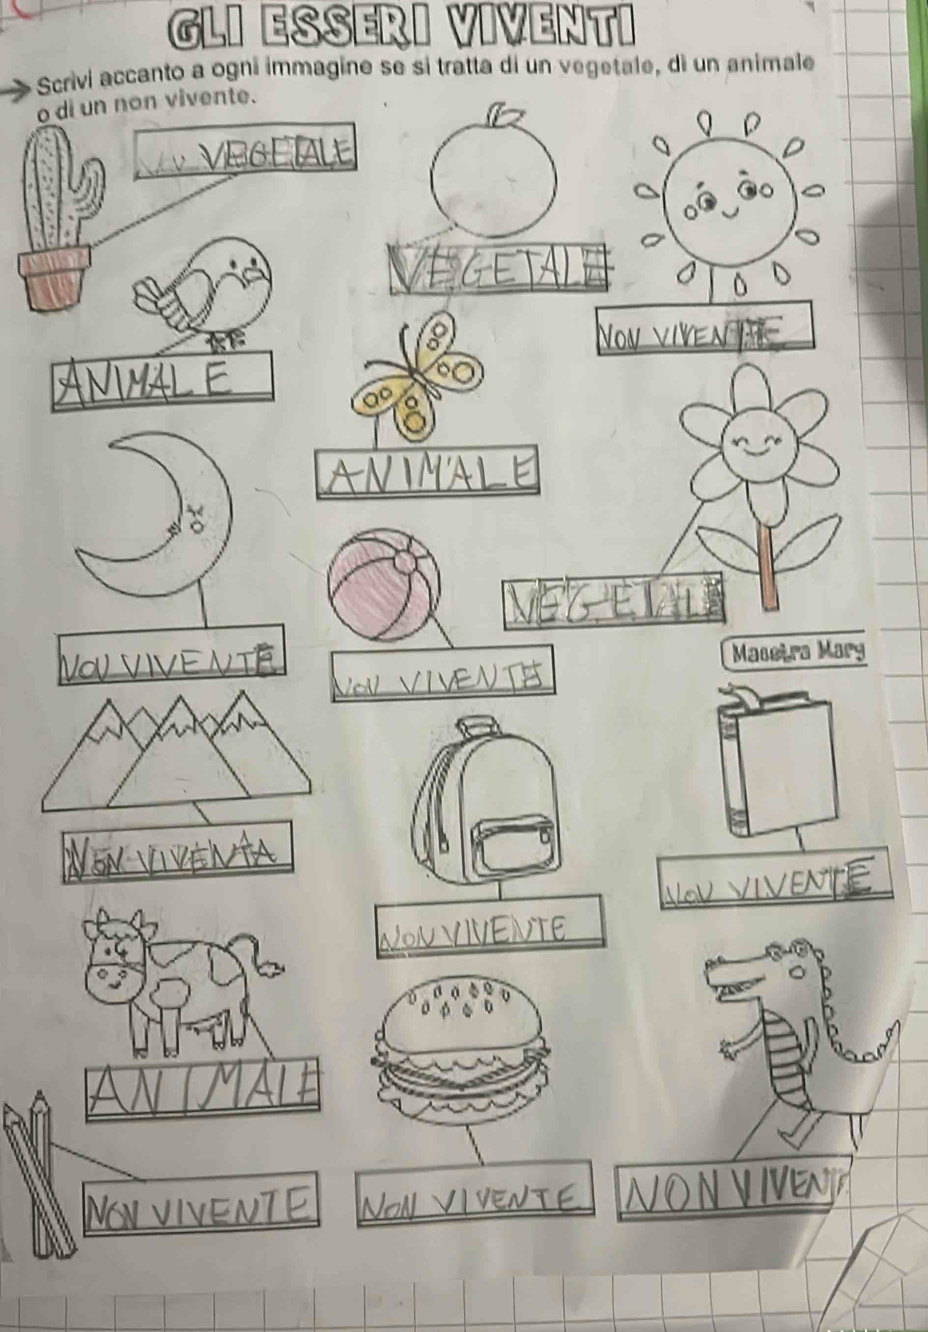 GLI ESSERI VIVENTI
Scrivi accanto a ogni immagine se si tratta di un vegetale, di un animale
o di un non vivente.
VEGETALE
VEGETALE
NON VIVENTE
ANIMALE
ANIMALE
VEGETALE
NON VIVENTE
NON VIVENTE
Maestra Mary
NON VIVENTA
NON VIVENTE
NON VIVENTE
ANIMALE
NON VIVENTE
NON VIVENTE
NON VIVENTE